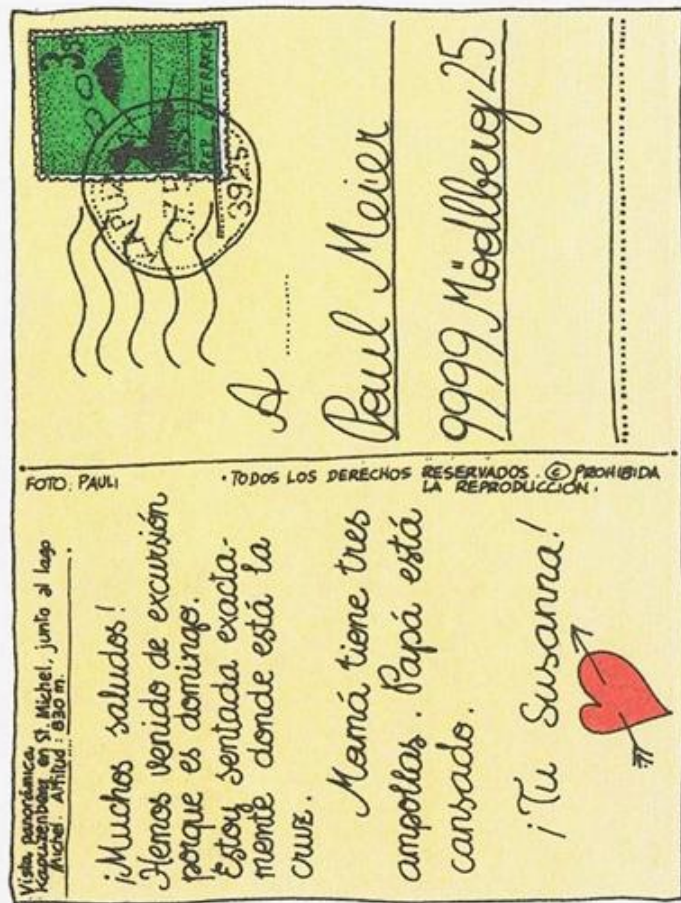 Vista panorámica.
Kapuzenberg en St. Michel, junto al lago
Michel. Altitud: 830 m.
¡Muchos saludos!
Hemos venido de excursión
porque es domingo.
Estoy sentada exacta-
mente donde está la
cruz.
Mamá tiene tres
ampollas. Papá está
cansado.
¡Tu Susanna!
FOTO: PAULI
• TODOS LOS DERECHOS RESERVADOS. © PROHIBIDA
LA REPRODUCCIÓN.
3s
3925
A
Paul Meier
9999 Mödlberg 25